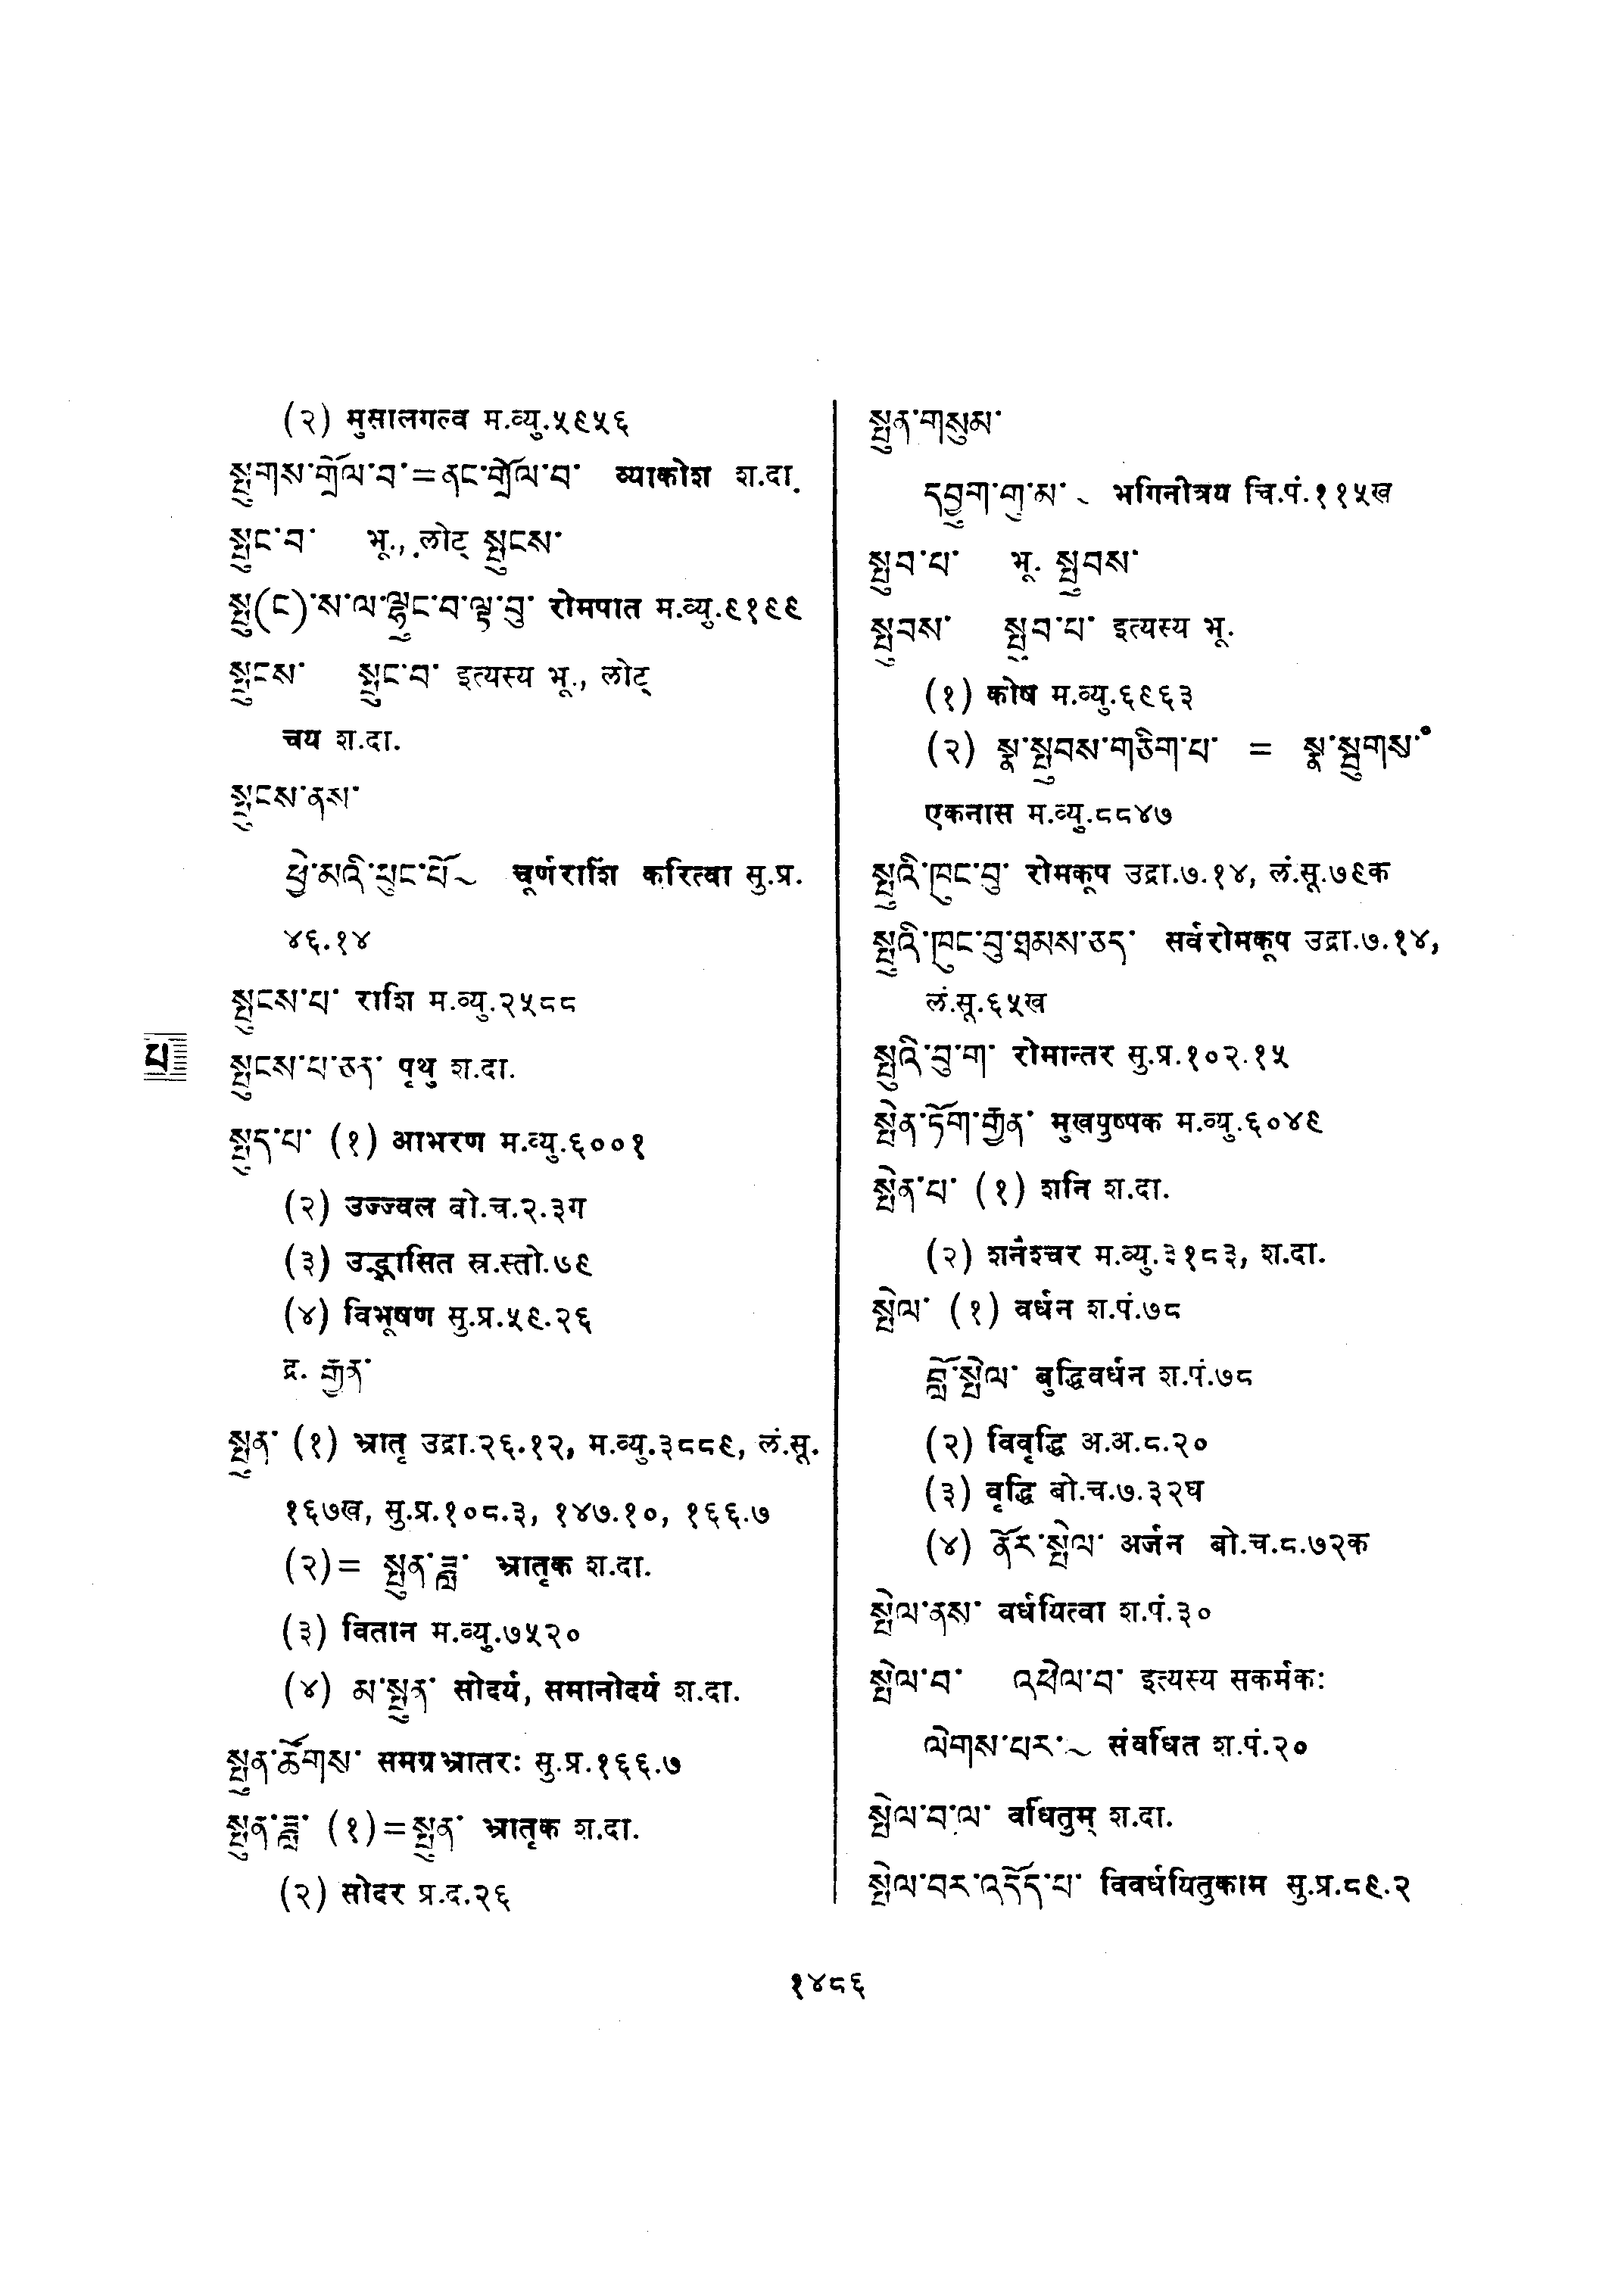 (२) मुसालगल्व म.व्यु.५९५६
སྤུགས་གྲོལ་བ་=ནང་གྲོལ་བ་ व्याकोश श.दा.
སྤུང་བ་ भू., लोट् སྤུངས་
སྤུ(ང)་ས་ལ་ལྷུང་བ་ལྟ་བུ་ रोमपात म.व्यु.९१९९
སྤུངས་ སྤུང་བ་ इत्यस्य भू., लोट्
चय श.दा.
སྤུངས་ནས་
ཕྱེ་མའི་ཕུང་པོ་~ चूर्णराशिं करित्वा सु.प्र.
४६.१४
སྤུངས་པ་ राशि म.व्यु.२५८८
པ
སྤུངས་པ་ཅན་ पृथु श.दा.
སྤུད་པ་ (१) आभरण म.व्यु.६००१
(२) उज्ज्वल बो.च.२.३ग
(३) उद्भासित स्र.स्तो.७९
(४) विभूषण सु.प्र.५९.२६
द्र. རྒྱན་
སྤུན་ (१) भ्रातृ उद्रा.२६.१२, म.व्यु.३८८९, लं.सू.
१६७ख, सु.प्र.१०८.३, १४७.१०, १६६.७
(२)= སྤུན་ཟླ་ भ्रातृक श.दा.
(३) वितान म.व्यु.७५२०
(४) མ་སྤུན་ सोदर्य, समानोदर्य श.दा.
སྤུན་ཚོགས་ समग्रभ्रातरः सु.प्र.१६६.७
སྤུན་ཟླ་ (१)=སྤུན་ भ्रातृक श.दा.
(२) सोदर प्र.द.२६
སྤུན་གསུམ་
དབྱུག་གུ་མ་ ~ भगिनीत्रय चि.पं.११५ख
སྤུབ་པ་ भू. སྤུབས་
སྤུབས་ སྤུབ་པ་ इत्यस्य भू.
(१) कोष म.व्यु.६९६३
(२) སྣ་སྤུབས་གཅིག་པ་ = སྣ་སྦུགས་°
एकनास म.व्यु.८८४७
སྤུའི་ཁུང་བུ་ रोमकूप उद्रा.७.१४, लं.सू.७९क
སྤུའི་ཁུང་བུ་ཐམས་ཅད་ सर्वरोमकूप उद्रा.७.१४,
लं.सू.६५ख
སྤུའི་བུ་ག་ रोमान्तर सु.प्र.१०२.१५
སྤེན་ཏོག་རྒྱན་ मुखपुष्पक म.व्यु.६०४९
སྤེན་པ་ (१) शनि श.दा.
(२) शनैश्चर म.व्यु.३१८३, श.दा.
སྤེལ་ (१) वर्धन श.पं.७८
བློ་སྤེལ་ बुद्धिवर्धन श.पं.७८
(२) विवृद्धि अ.अ.८.२०
(३) वृद्धि बो.च.७.३२घ
(४) ནོར་སྤེལ་ अर्जन बो.च.८.७२क
སྤེལ་ནས་ वर्धयित्वा श.पं.३०
སྤེལ་བ་ འཕེལ་བ་ इत्यस्य सकर्मकः
ལེགས་པར་~ संवर्धित श.पं.२०
སྤེལ་བ་ལ་ वर्धितुम् श.दा.
སྤེལ་བར་འདོད་པ་ विवर्धयितुकाम सु.प्र.८९.२
१४८६